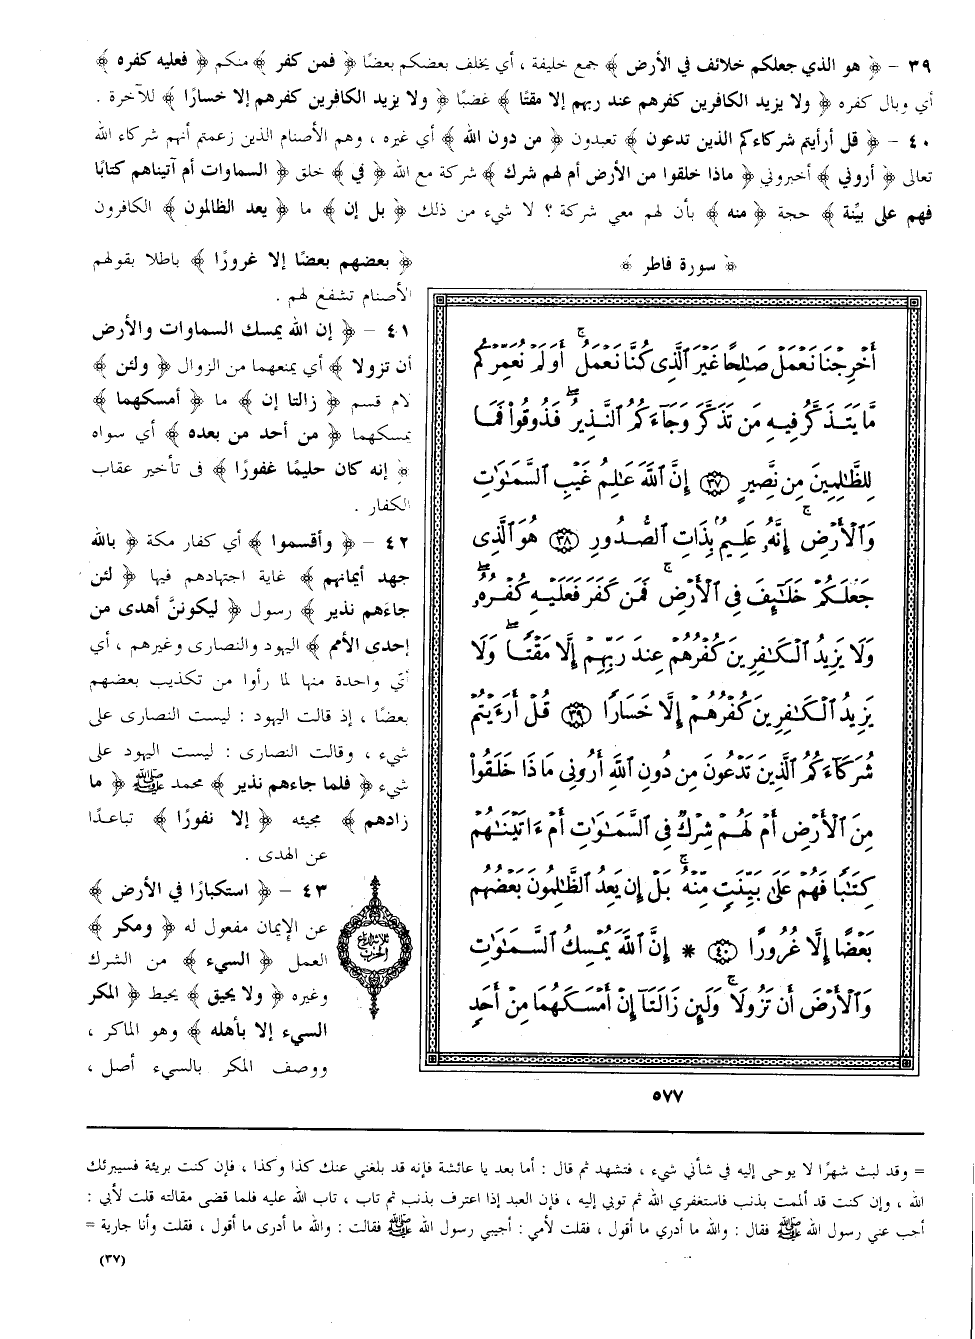 ٣٩ – ﴿ هو الذي جعلكم خلائف في الأرض ﴾ جمع خليفة ، أي يخلف بعضكم بعضًا ﴿ فمن كفر ﴾ منكم ﴿ فعليه كفره ﴾
أي وبال كفره ﴿ ولا يزيد الكافرين كفرهم عند ربهم إلا مقتًا ﴾ غضبًا ﴿ ولا يزيد الكافرين كفرهم إلا خسارًا ﴾ للآخرة .
٤٠ – ﴿ قل أرأيتم شركاءكم الذين تدعون ﴾ تعبدون ﴿ من دون الله ﴾ أي غيره ، وهم الأصنام الذين زعمتم أنهم شركاء الله
تعالى ﴿ أروني ﴾ أخبروني ﴿ ماذا خلقوا من الأرض أم لهم شرك ﴾ شركة مع الله ﴿ في ﴾ خلق ﴿ السماوات أم آتيناهم كتابًا
فهم على بيِّنة ﴾ حجة ﴿ منه ﴾ بأن لهم معي شركة ؟ لا شيء من ذلك ﴿ بل إن ﴾ ما ﴿ يعد الظالمون ﴾ الكافرون
﴿ بعضهم بعضًا إلا غرورًا ﴾ باطلا بقولهم
الأصنام تشفع لهم .
٤١ – ﴿ إن الله يمسك السماوات والأرض
أن تزولا ﴾ أي يمنعهما من الزوال ﴿ ولئن ﴾
لام قسم ﴿ زالتا إن ﴾ ما ﴿ أمسكهما ﴾
يمسكهما ﴿ من أحد من بعده ﴾ أي سواه
﴿ إنه كان حليمًا غفورًا ﴾ فى تأخير عقاب
الكفار .
٤٢ – ﴿ وأقسموا ﴾ أي كفار مكة ﴿ بالله
جهد أيمانهم ﴾ غاية اجتهادهم فيها ﴿ لئن
جاءهم نذير ﴾ رسول ﴿ ليكوننَّ أهدى من
إحدى الأمم ﴾ اليهود والنصارى وغيرهم ، أي
أيّ واحدة منها لما رأوا من تكذيب بعضهم
بعضًا ، إذ قالت اليهود : ليست النصارى على
شيء ، وقالت النصارى : ليست اليهود على
شيء ﴿ فلما جاءهم نذير ﴾ محمد ﷺ ﴿ ما
زادهم ﴾ مجيئه ﴿ إلا نفورًا ﴾ تباعدًا
عن الهدى .
٤٣ – ﴿ استكبارًا في الأرض ﴾
عن الإيمان مفعول له ﴿ ومكر ﴾
العمل ﴿ السيء ﴾ من الشرك
وغيره ﴿ ولا يحيق ﴾ يحيط ﴿ المكر
السيء إلا بأهله ﴾ وهو الماكر ،
ووصف المكر بالسيء أصل ،
﴿ سورة فاطر ﴾
أَخْرِجْنَا نَعْمَلْ صَٰلِحًا غَيْرَ ٱلَّذِى كُنَّا نَعْمَلُ ۚ أَوَلَمْ نُعَمِّرْكُم
مَّا يَتَذَكَّرُ فِيهِ مَن تَذَكَّرَ وَجَآءَكُمُ ٱلنَّذِيرُ ۖ فَذُوقُوا۟ فَمَا
لِلظَّٰلِمِينَ مِن نَّصِيرٍ ٣٧ إِنَّ ٱللَّهَ عَٰلِمُ غَيْبِ ٱلسَّمَٰوَٰتِ
وَٱلْأَرْضِ ۚ إِنَّهُۥ عَلِيمٌۢ بِذَاتِ ٱلصُّدُورِ ٣٨ هُوَ ٱلَّذِى
جَعَلَكُمْ خَلَٰٓئِفَ فِى ٱلْأَرْضِ ۚ فَمَن كَفَرَ فَعَلَيْهِ كُفْرُهُۥ ۖ
وَلَا يَزِيدُ ٱلْكَٰفِرِينَ كُفْرُهُمْ عِندَ رَبِّهِمْ إِلَّا مَقْتًا ۖ وَلَا
يَزِيدُ ٱلْكَٰفِرِينَ كُفْرُهُمْ إِلَّا خَسَارًا ٣٩ قُلْ أَرَءَيْتُمْ
شُرَكَآءَكُمُ ٱلَّذِينَ تَدْعُونَ مِن دُونِ ٱللَّهِ أَرُونِى مَاذَا خَلَقُوا۟
مِنَ ٱلْأَرْضِ أَمْ لَهُمْ شِرْكٌ فِى ٱلسَّمَٰوَٰتِ أَمْ ءَاتَيْنَٰهُمْ
كِتَٰبًا فَهُمْ عَلَىٰ بَيِّنَتٍ مِّنْهُ ۚ بَلْ إِن يَعِدُ ٱلظَّٰلِمُونَ بَعْضُهُم
بَعْضًا إِلَّا غُرُورًا ٤٠ * إِنَّ ٱللَّهَ يُمْسِكُ ٱلسَّمَٰوَٰتِ
وَٱلْأَرْضَ أَن تَزُولَا ۚ وَلَئِن زَالَتَآ إِنْ أَمْسَكَهُمَا مِنْ أَحَدٍ
٥٧٧
= وقد لبث شهرًا لا يوحى إليه في شأني شيء ، فتشهد ثم قال : أما بعد يا عائشة فإنه قد بلغني عنك كذا وكذا ، فإن كنت بريئة فسيبرئك
الله ، وإن كنت قد ألممت بذنب فاستغفري الله ثم توبي إليه ، فإن العبد إذا اعترف بذنب ثم تاب ، تاب الله عليه فلما قضى مقالته قلت لأبي :
أحب عني رسول الله ﷺ فقال : والله ما أدري ما أقول ، فقلت لأمي : أجيبي رسول الله ﷺ فقالت : والله ما أدرى ما أقول ، فقلت وأنا جارية =
(٣٧)